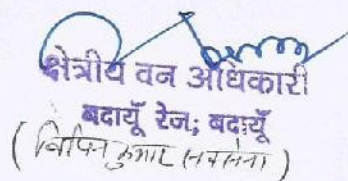 क्षेत्रीय वन अधिकारी
बदायूँ रेंज; बदायूँ
(विपिन कुमार सक्सेना)